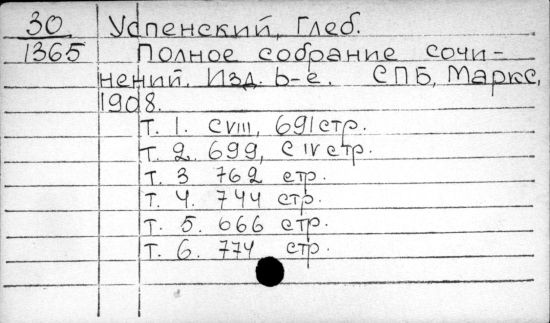 30 Успенский, Глеб.
1365 Полное собрание сочи-
нений. Изд. 6-е. СПБ, Маркс,
1908.
т. 1. CVIII, 691 стр.
т. 2. 699, CIV стр.
т. 3 762 стр.
т. 4. 744 стр.
т. 5. 666 стр.
т. 6. 774 стр.